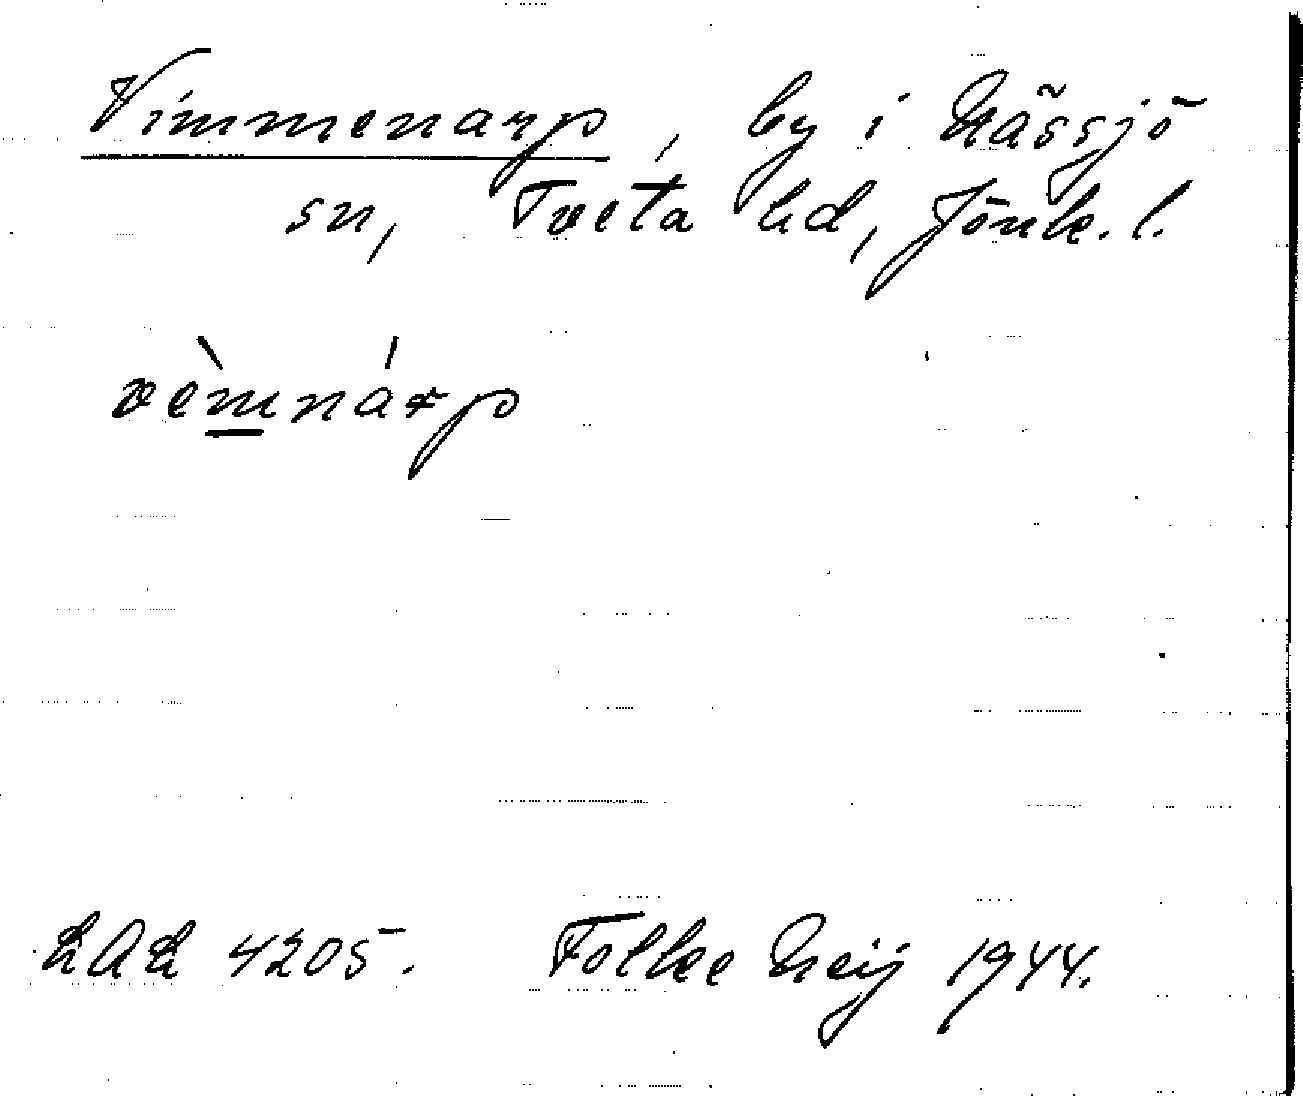 Vimmenarp, by i Nässjö
sn, Tveta hd, Jönk. l.
vèmnárp
LAL 4205. Folke Neij 1944.